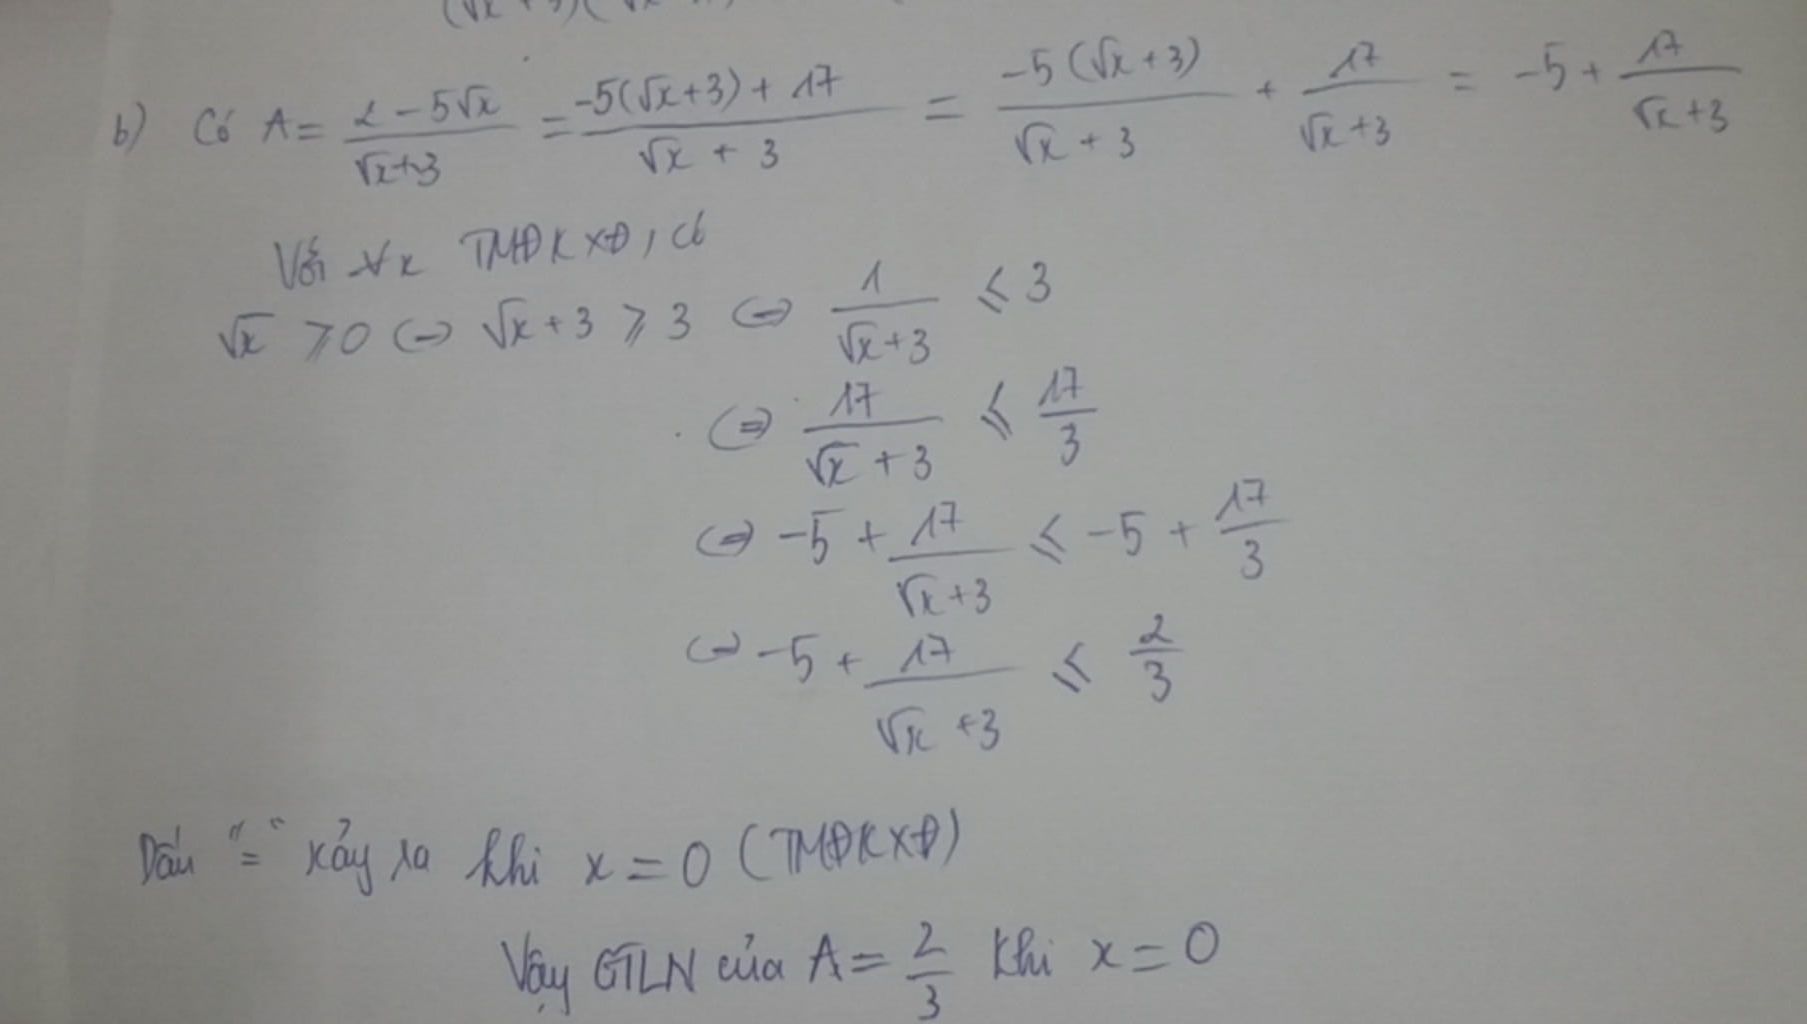 b) Có A = (2 - 5√x)/(√x+3) = (-5(√x+3) + 17)/(√x + 3) = (-5(√x+3))/(√x + 3) + 17/(√x+3) = -5 + 17/(√x+3)
Với ∀x TMĐKXĐ, có
√x ⩾ 0 ⇔ √x + 3 ⩾ 3 ⇔ 1/(√x+3) ⩽ 3
⇔ 17/(√x + 3) ⩽ 17/3
⇔ -5 + 17/(√x+3) ⩽ -5 + 17/3
⇔ -5 + 17/(√x + 3) ⩽ 2/3
Dấu "=" xảy ra khi x = 0 (TMĐKXĐ)
Vậy GTLN của A = 2/3 khi x = 0